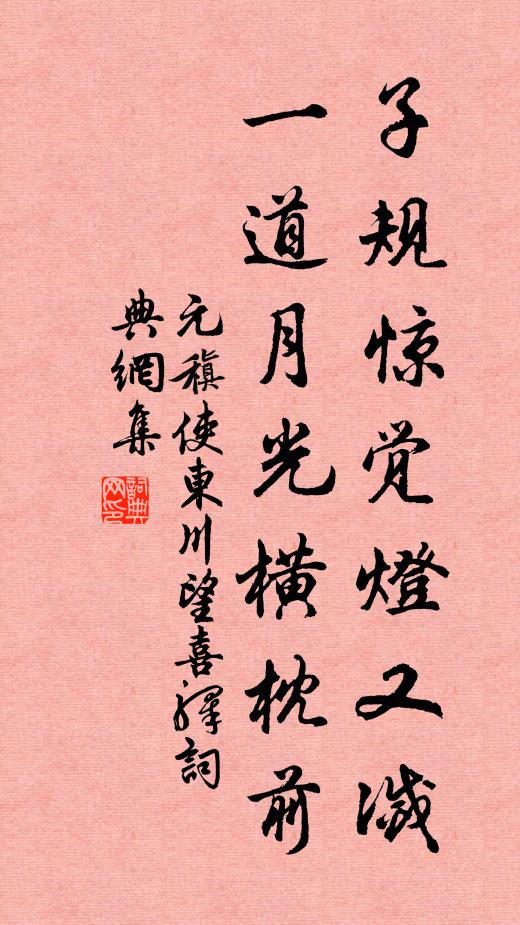 子规惊觉燈又滅
一道月光横枕前
元稹使東川望喜驛詞
典網集
詞典网印